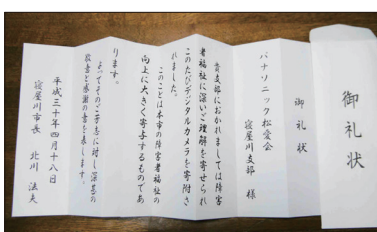 御礼状
御礼状
パナソニック松愛会
寝屋川支部 様
貴支部におかれましては障害
者福祉に深いご理解を寄せられ
このたびデジタルカメラを寄附さ
れました。
このことは本市の障害者福祉の
向上に大きく寄与するものであ
ります。
よってそのご芳志に対し深甚の
敬意と感謝の意を表します。
平成三十年四月十八日
寝屋川市長 北川 法夫